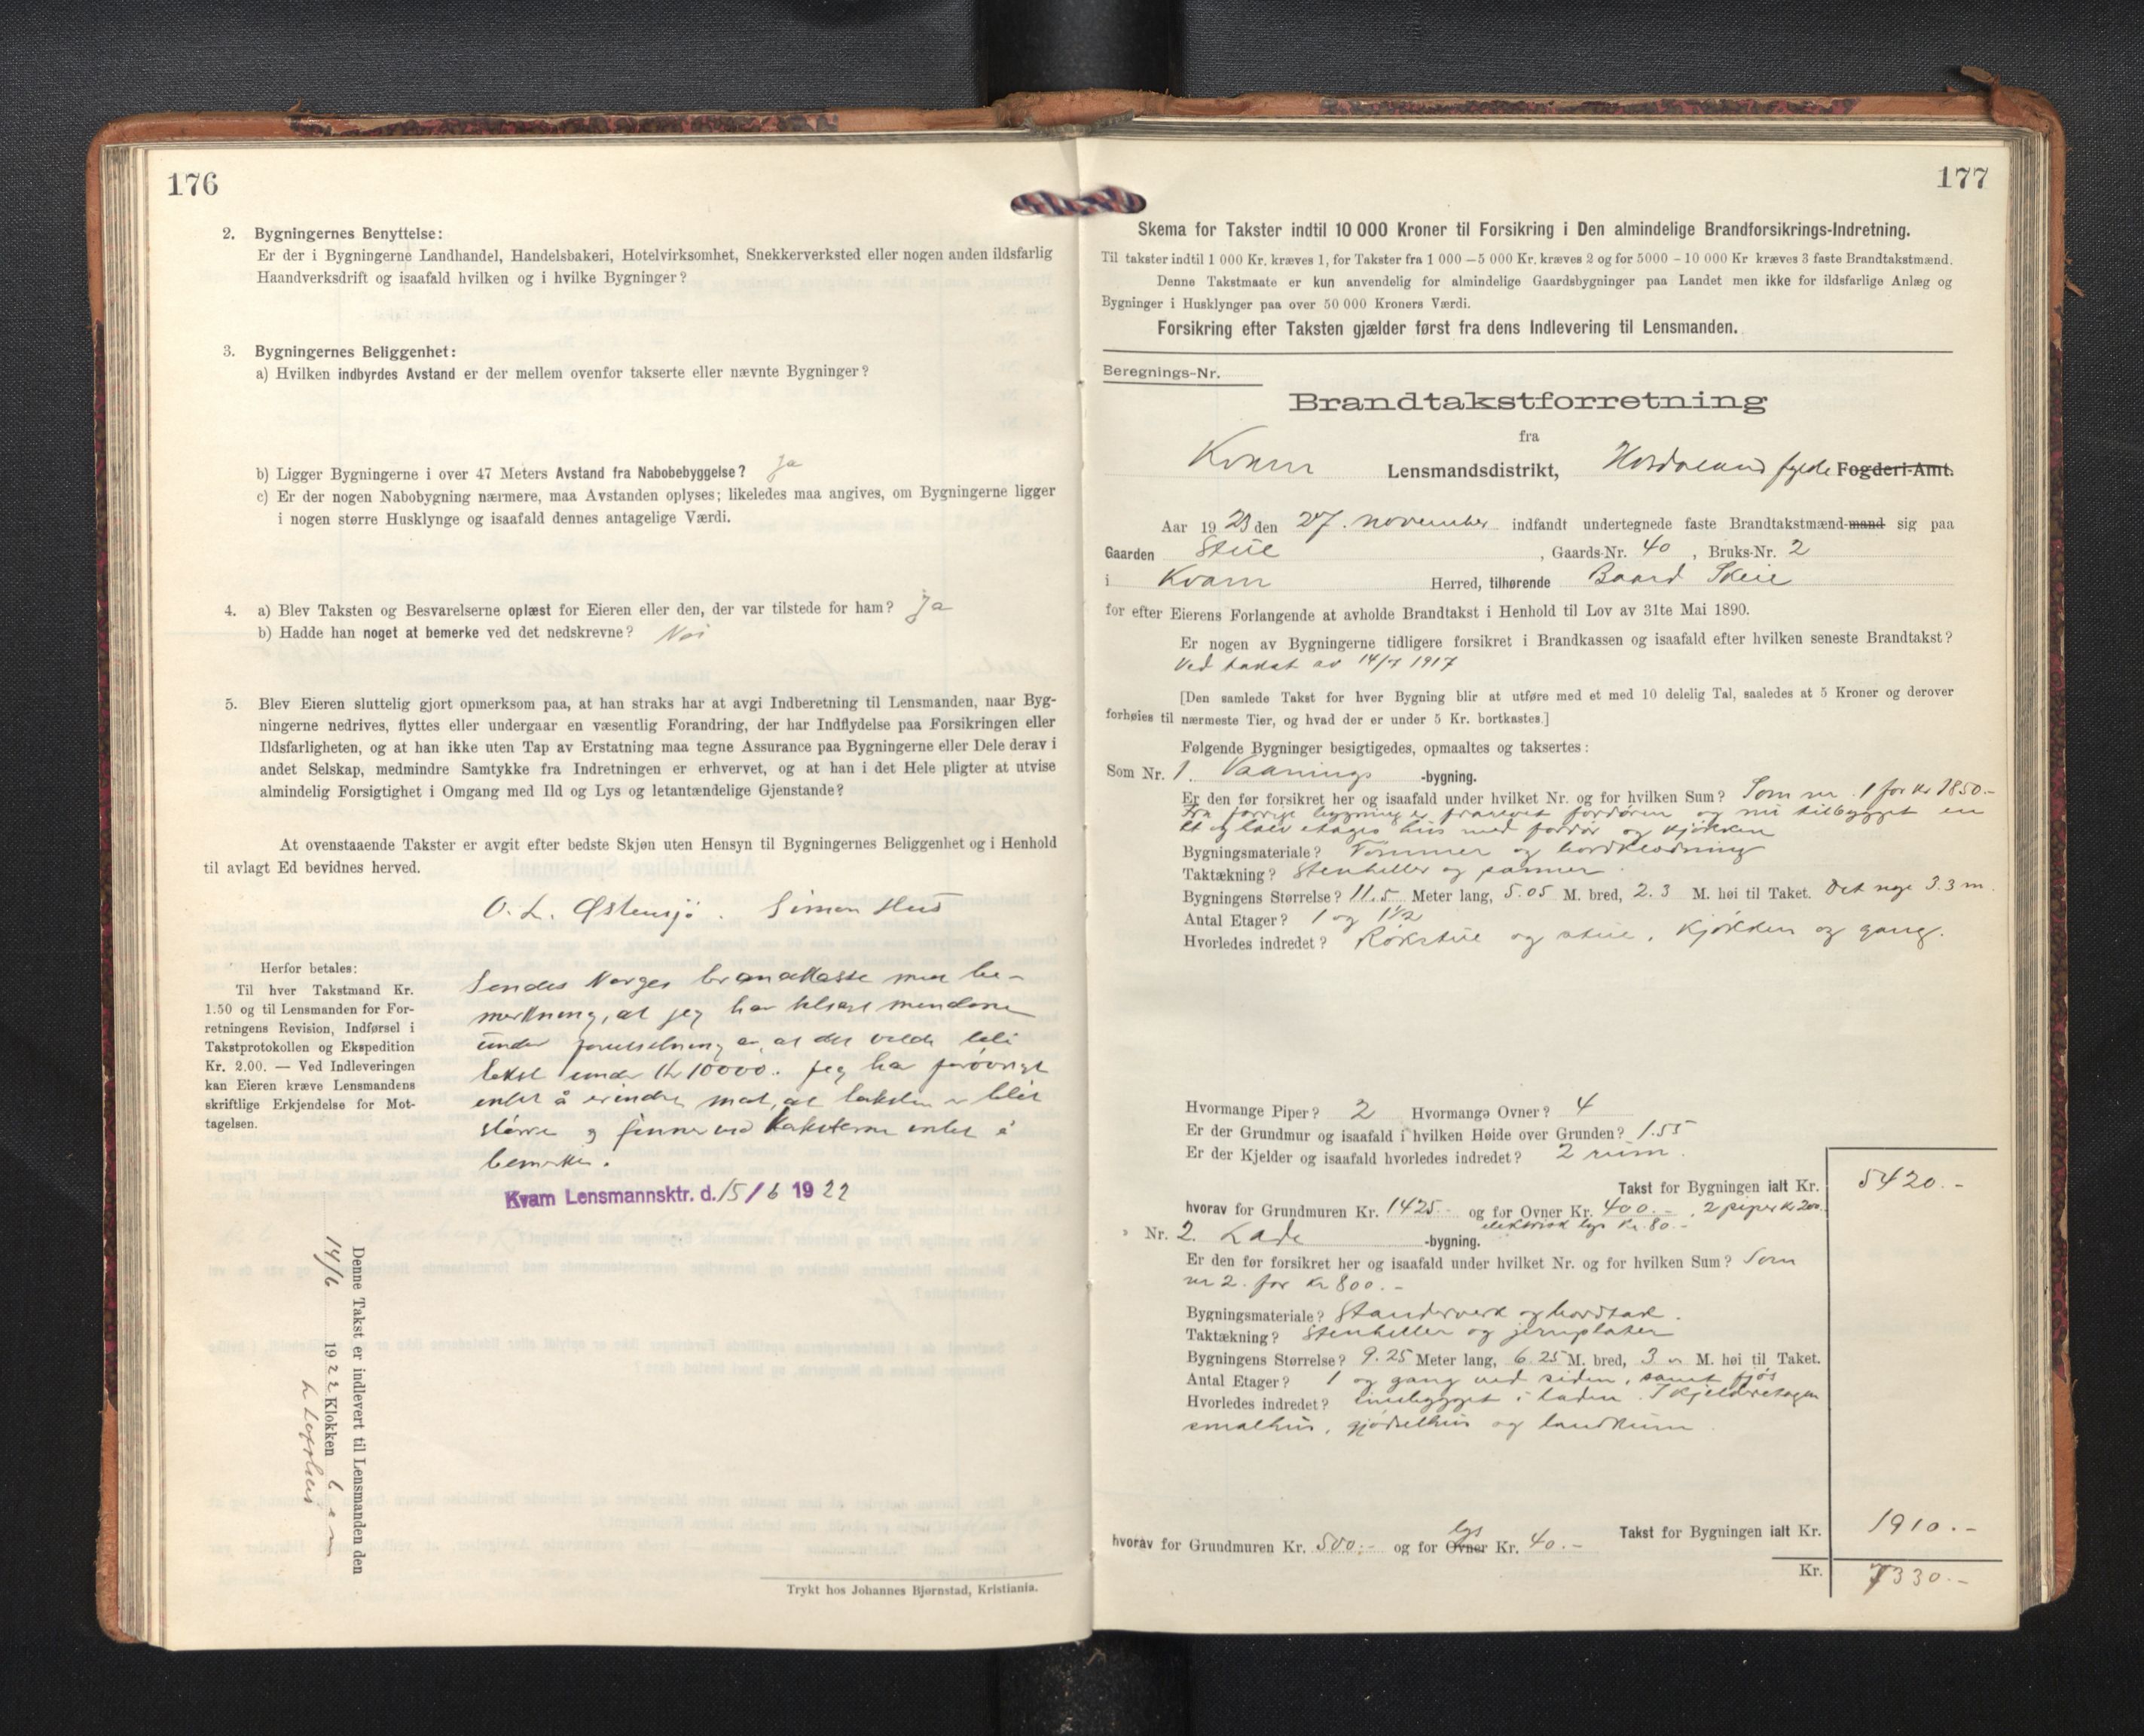 176
2. Bygningernes Benyttelse:
Er der i Bygningerne Landhandel, Handelsbakeri, Hotelvirksomhet, Snekkerverksted eller nogen anden ildsfarlig
Haandverksdrift og isaafald hvilken og i hvilke Bygninger?
3. Bygningernes Beliggenhet:
a) Hvilken indbyrdes Avstand er der mellem ovenfor takserte eller nævnte Bygninger?
b) Ligger Bygningerne i over 47 Meters Avstand fra Nabobebyggelse? Ja
c) Er der nogen Nabobygning nærmere, maa Avstanden oplyses; likeledes maa angives, om Bygningerne ligger
i nogen større Husklynge og isaafald dennes antagelige Værdi.
4. a) Blev Taksten og Besvarelserne oplæst for Eieren eller den, der var tilstede for ham? Ja
b) Hadde han noget at bemerke ved det nedskrevne? Nei
5. Blev Eieren sluttelig gjort opmerksom paa, at han straks har at avgi Indberetning til Lensmanden, naar Byg-
ningerne nedrives, flyttes eller undergaar en væsentlig Forandring, der har Indflydelse paa Forsikringen eller
Ildsfarligheten, og at han ikke uten Tap av Erstatning maa tegne Assurance paa Bygningerne eller Dele derav i
andet Selskap, medmindre Samtykke fra Indretningen er erhvervet, og at han i det Hele pligter at utvise
almindelig Forsigtighet i Omgang med Ild og Lys og letantændelige Gjenstande?
At ovenstaaende Takster er avgit efter bedste Skjøn uten Hensyn til Bygningernes Beliggenhet og i Henhold
til avlagt Ed bevidnes herved.
O. L. Østensjö. Simon
Herfor betales:
Til hver Takstmand Kr.
1.50 og til Lensmanden for For-
retningens Revision, Indførsel i
Takstprotokollen og Ekspedition
Kr. 2.00. — Ved Indleveringen
kan Eieren kræve Lensmandens
skriftlige Erkjendelse for Mot-
tagelsen.
Sendes Norges brandkasse med be-
merkning, at jeg har tilsagt mændene
under forutsetning av, at det vilde bli
takst under Kr 10000. Jeg har forövrigt
intet å erindre mot, at taksten er blit
större og finner ved taksterne intet å
bemerke.
Kvam Lensmannsktr. d. 15/6 1922
Denne Takst er indlevert til Lensmanden den
14/6 1922 Klokken
Trykt hos Johannes Bjørnstad, Kristiania.
177
Skema for Takster indtil 10 000 Kroner til Forsikring i Den almindelige Brandforsikrings-Indretning.
Til takster indtil 1 000 Kr. kræves 1, for Takster fra 1 000 — 5 000 Kr. kræves 2 og for 5000 - 10 000 Kr kræves 3 faste Brandtakstmænd.
Denne Takstmaate er kun anvendelig for almindelige Gaardsbygninger paa Landet men ikke for ildsfarlige Anlæg og
Bygninger i Husklynger paa over 50 000 Kroners Værdi.
Forsikring efter Taksten gjælder først fra dens Indlevering til Lensmanden.
Beregnings-Nr.
Brandtakstforretning
fra
Kvam Lensmandsdistrikt, Hordaland fylde Fogderi-Amt.
Aar 1923 den 27. november indfandt undertegnede faste Brandtakstmænd-mand sig paa
Gaarden Skeie, Gaards-Nr. 40, Bruks-Nr. 2
i Kvam Herred, tilhørende Baard Skeie
for efter Eierens Forlangende at avholde Brandtakst i Henhold til Lov av 31te Mai 1890.
Er nogen av Bygningerne tidligere forsikret i Brandkassen og isaafald efter hvilken seneste Brandtakst?
Ved takst av 14/7 1917
[Den samlede Takst for hver Bygning blir at utføre med et med 10 delelig Tal, saaledes at 5 Kroner og derover
forhøies til nærmeste Tier, og hvad der er under 5 Kr. bortkastes.]
Følgende Bygninger besigtigedes, opmaaltes og taksertes:
Som Nr. 1. Vaanings -bygning.
Er den før forsikret her og isaafald under hvilket Nr. og for hvilken Sum? Som nr. 1 for kr 1850.-
Fra forrige bygning er frarevet fordören og nu tilbygget en
et og halv etages hus med fordör og kjökken
Bygningsmateriale? Tömmer og bordklædning
Taktækning? Stenheller og panner.
Bygningens Størrelse? 11.5 Meter lang, 5.05 M. bred, 2.3 M. høi til Taket. Det nye 3.3 m.
Antal Etager? 1 og 1½
Hvorledes indredet? Rökstue og stue, kjökken og gang.
Hvormange Piper? 2 Hvormange Ovner? 4
Er der Grundmur og isaafald i hvilken Høide over Grunden? 1.55
Er der Kjelder og isaafald hvorledes indredet? 2 rum.
Takst for Bygningen ialt Kr. 5420.-
hvorav for Grundmuren Kr. 1425.- og for Ovner Kr. 400.-, 2 piper kr 200.
elektrisk lys kr. 80.-
» Nr. 2. Lade -bygning.
Er den før forsikret her og isaafald under hvilket Nr. og for hvilken Sum? Som
nr 2. for kr 800.-
Bygningsmateriale? Standerverk og bordtak.
Taktækning? Stenheller og jernplater
Bygningens Størrelse? 9.25 Meter lang, 6.25 M. bred, 3 M. høi til Taket.
Antal Etager? 1 og gang ved siden, samt fjös
Hvorledes indredet? innbygget i laden. I kjelderetagen
smalhus, gjödselhus og landkum
Takst for Bygningen ialt Kr. 1910.-
hvorav for Grundmuren Kr. 500.- og for Ovner lys Kr. 40.-
Kr. 7330.-